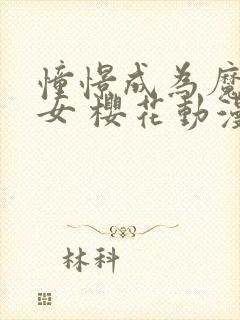 憧憬成為魔
女 櫻花動漫
林科